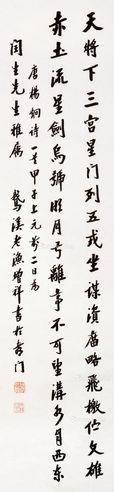 天將下三宮星門列五戎坐謀資廟略飛檄伫文雄
赤土流星劍烏號明月弓離亭不可望溝水自西东
唐楊炯詩一首甲子上元前二日為
閏生先生雅屬 溪老漁增祥書於門